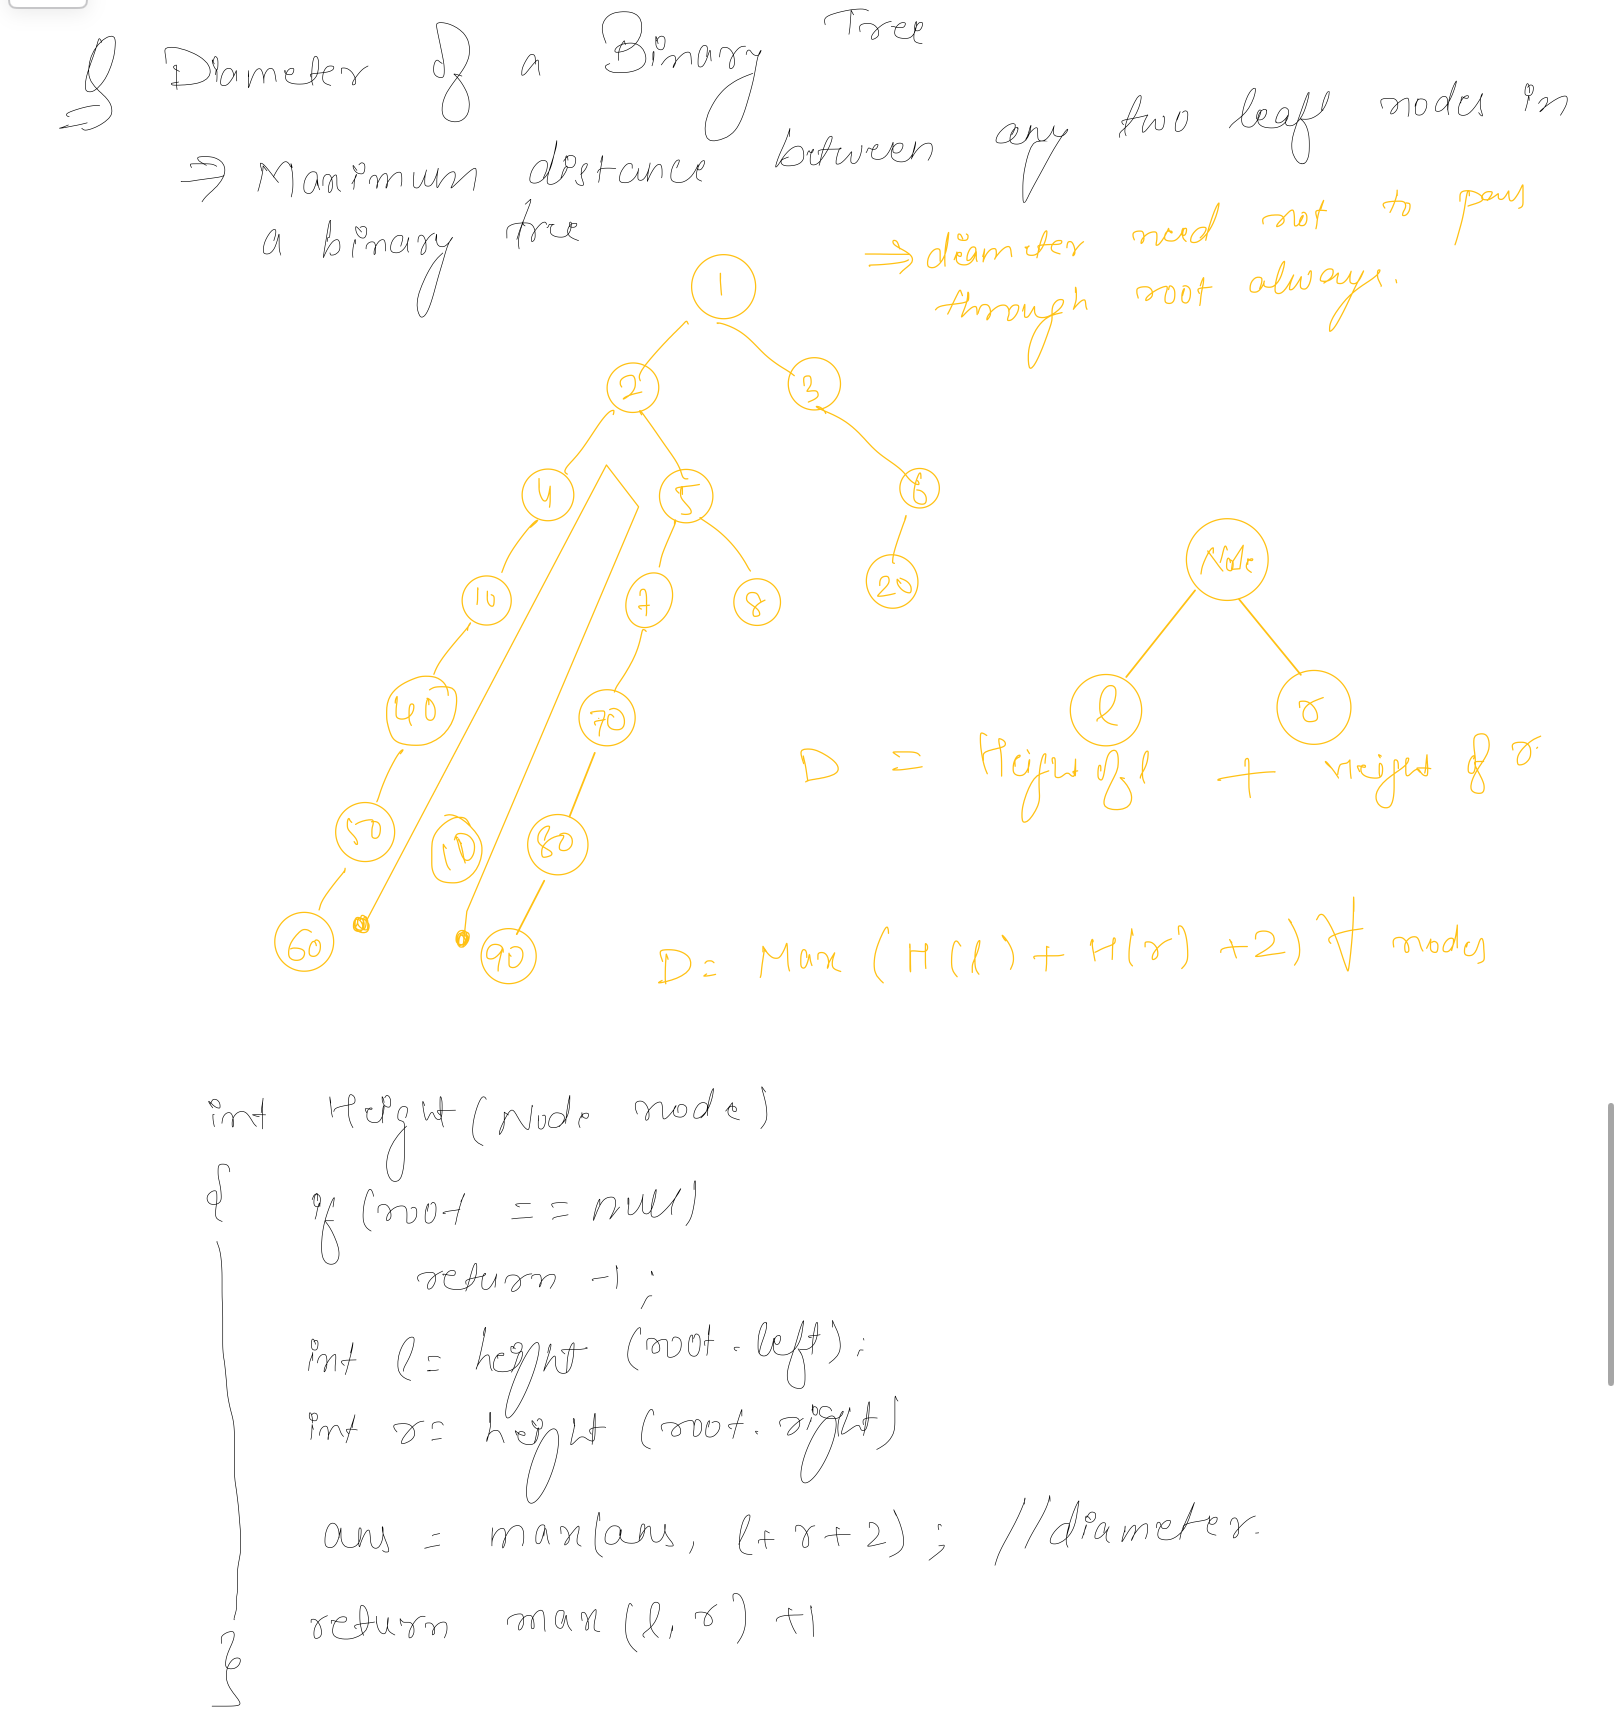 Q Diameter of a Binary Tree
⇒ Maximum distance between any two leaf nodes in
a binary tree
⇒ diameter need not to pass
through root always.
1
2 3
4 5 6
10 7 8 20
Node
40 70
l r
D = Height of l + Height of r
50 10 80
60 90
D = Max (H(l) + H(r) +2) ∀ nodes
int Height (Node node)
{ if (root == null)
return -1;
int l = height (root.left);
int r = height (root.right)
ans = max(ans, l+r+2); //diameter.
return max (l, r) +1
}